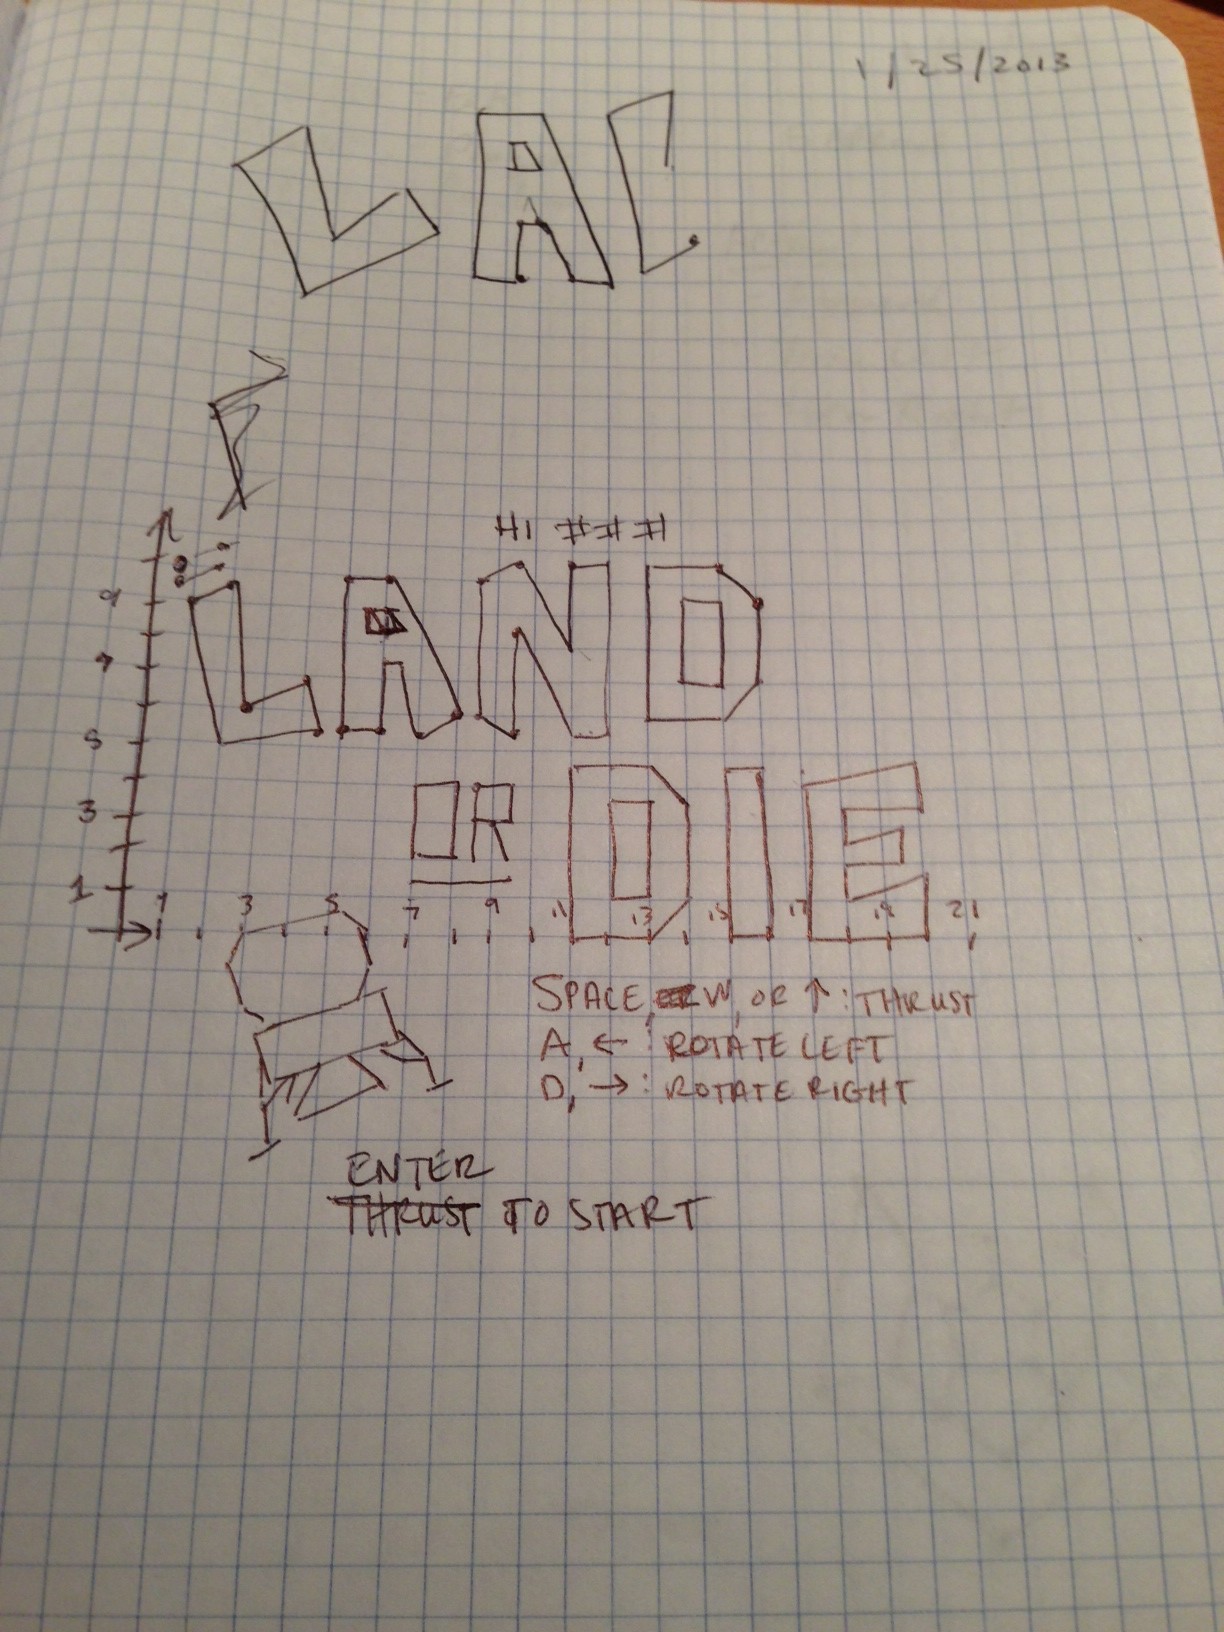 1/25/2013
LA
HI ###
LAND
OR DIE
9
7
5
3
1
1 3 5 7 9 11 13 15 17 19 21
SPACE, W, OR ↑: THRUST
A, ←: ROTATE LEFT
D, →: ROTATE RIGHT
ENTER
THRUST TO START